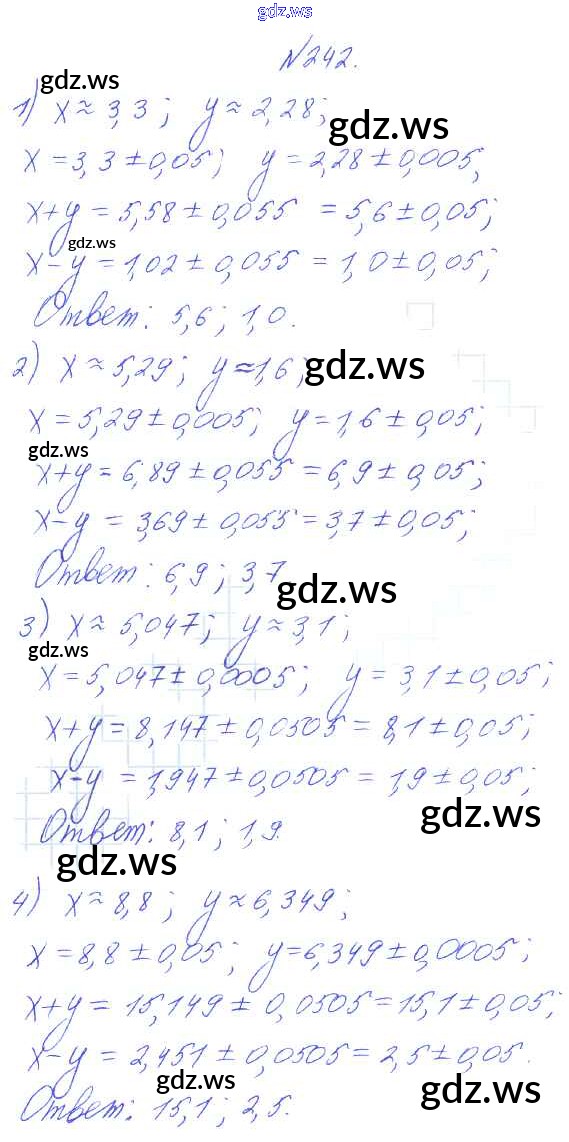 gdz.ws
N 242.
gdz.ws
1) x ≈ 3,3; y ≈ 2,28;
gdz.ws
x = 3,3 ± 0,05; y = 2,28 ± 0,005;
x+y = 5,58 ± 0,055 = 5,6 ± 0,05;
gdz.ws
x-y = 1,02 ± 0,055 = 1,0 ± 0,05;
Ответ: 5,6; 1,0.
2) x ≈ 5,29; y ≈ 1,6;
gdz.ws
x = 5,29 ± 0,005; y = 1,6 ± 0,05;
gdz.ws
x+y = 6,89 ± 0,055 = 6,9 ± 0,05;
x-y = 3,69 ± 0,055 = 3,7 ± 0,05;
Ответ: 6,9; 3,7
gdz.ws
3) x ≈ 5,047; y ≈ 3,1;
gdz.ws
x = 5,047 ± 0,0005; y = 3,1 ± 0,05;
x+y = 8,147 ± 0,0505 = 8,1 ± 0,05;
x-y = 1,947 ± 0,0505 = 1,9 ± 0,05;
gdz.ws
Ответ: 8,1; 1,9.
gdz.ws
4) x ≈ 8,8; y ≈ 6,349;
x = 8,8 ± 0,05; y = 6,349 ± 0,0005;
x+y = 15,149 ± 0,0505 = 15,1 ± 0,05;
x-y = 2,451 ± 0,0505 = 2,5 ± 0,05.
gdz.ws
gdz.ws
Ответ: 15,1; 2,5.